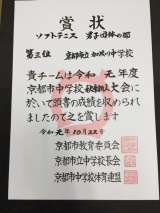 賞状
ソフトテニス 男子団体の部
第三位 京都市立加茂川中学校
貴チームは令和元年度
京都市中学校秋季新人大会に
於いて頭書の成績を収められ
ましたのでこれを賞します
令和元年10月22日
京都市教育委員会
京都市立中学校長会
京都市中学校体育連盟